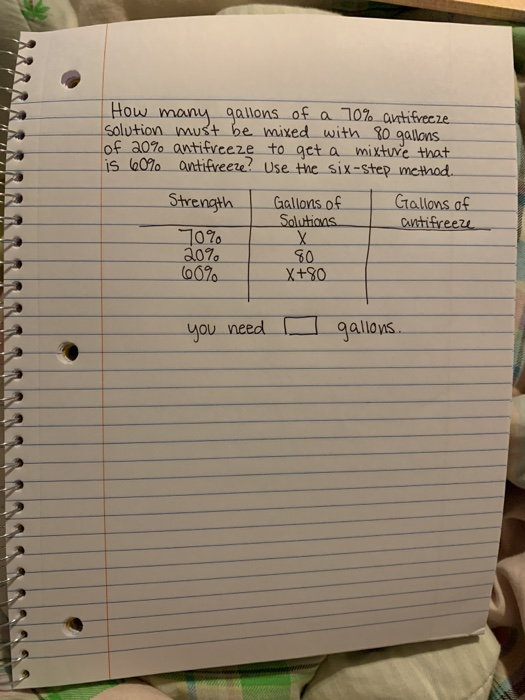 How many gallons of a 70% antifreeze
solution must be mixed with 80 gallons
of 20% antifreeze to get a mixture that
is 60% antifreeze? Use the six-step method.
Strength Gallons of Solutions Gallons of antifreeze
70% X
20% 80
60% X+80
you need gallons.